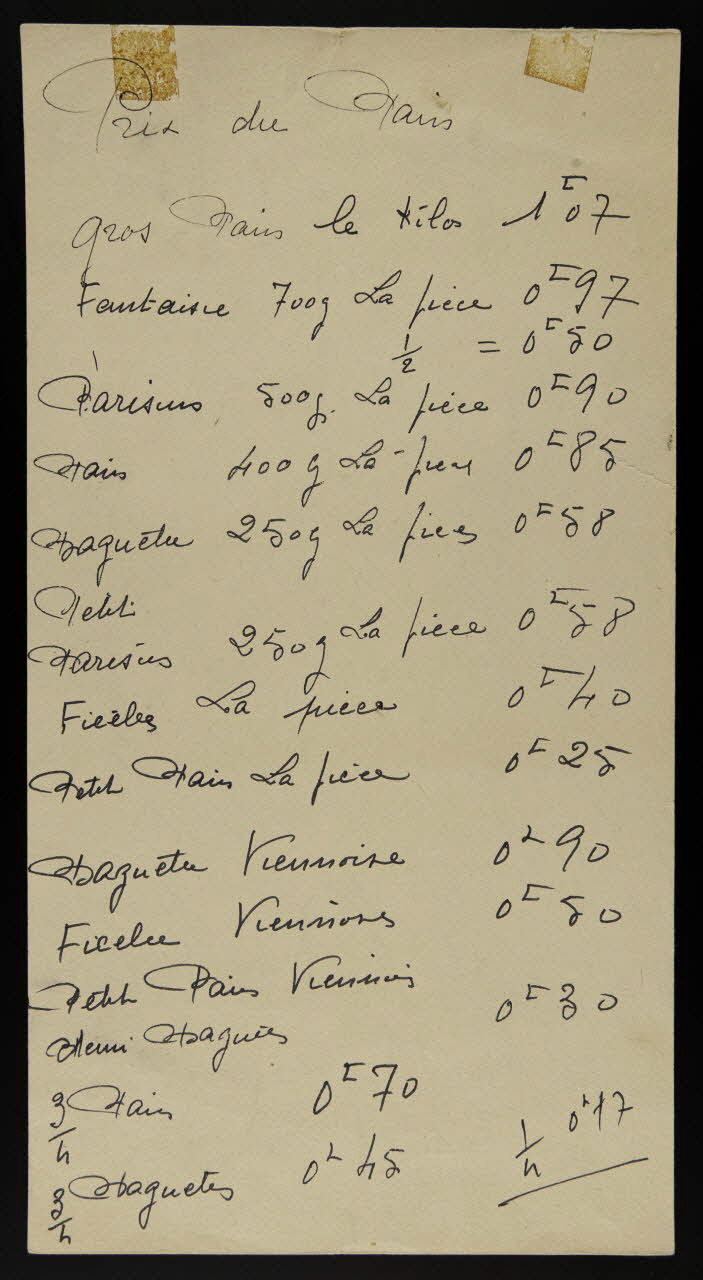 Prix du Pain
gros Pain le Kilos 1F07
Fantaisie 700g La pièce 0F97
1/2 = 0F50
Parisiens 500g. La pièce 0F90
Pain 400g La pièce 0F85
Baguette 250g La pièces 0F58
Petit
Parisiens 250g La pièce 0F58
Ficèles La pièce 0F40
Petit Pain La pièce 0F25
Baguette Viennoise 0F90
Ficelle Viennoises 0F50
Petit Pains Viennois 0F30
Demi Baguettes
3/4 Pain 0F70
1/4 0F17
3/4 Baguettes 0F45